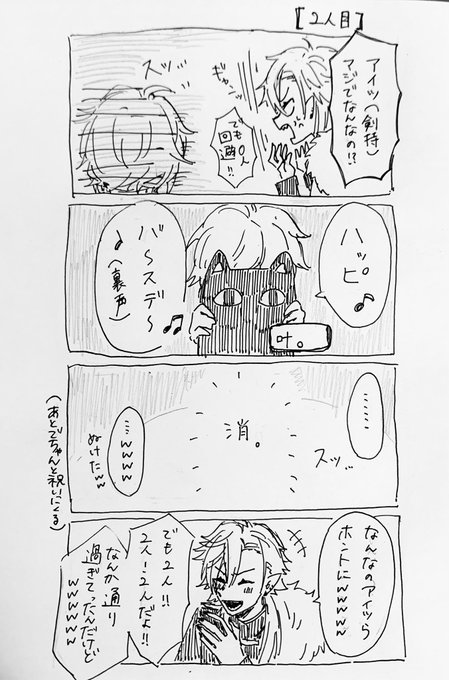 【2人目】
アイツ(剣持)
マジでなんなの!?
ギャンッ
でも0人
回避!!
スッ
ハッピ♪
バ～スデ～
♪(裏声)
叶。
……
消。
スッ
…wwww
ぬけたww
(あとでちゃんと祝いにくる)
なんなのアイツら
ホントにwwwww
でも2人!!
2人!2人だよ!!
なんか通り
過ぎてったんだけど
wwwwww